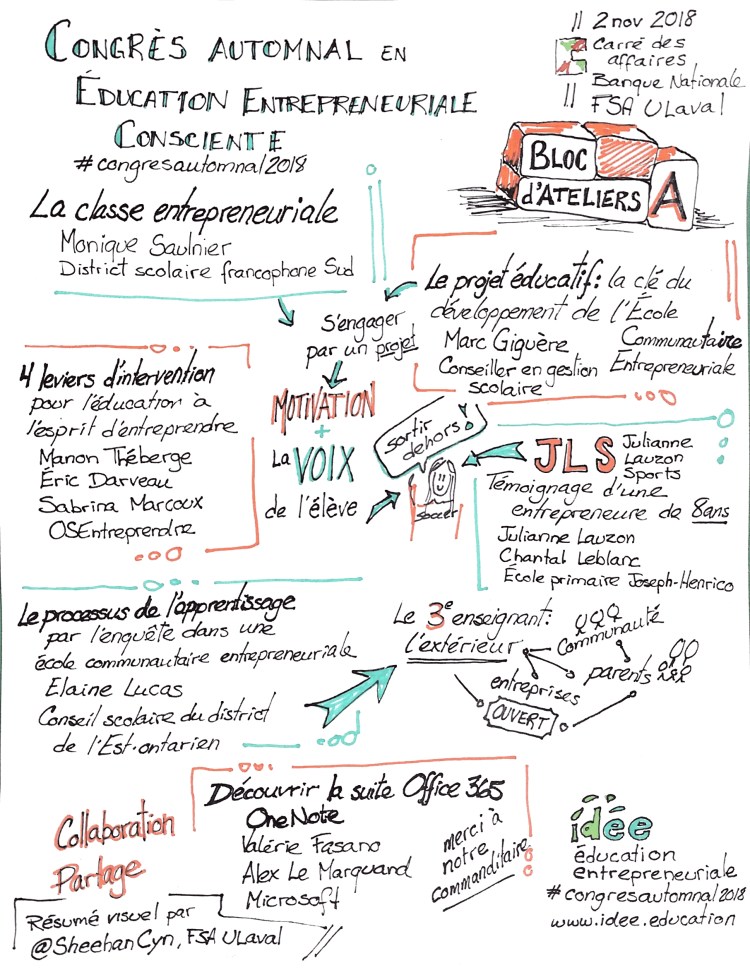 CONGRÈS AUTOMNAL EN
ÉDUCATION ENTREPRENEURIALE
CONSCIENTE
#congresautomnal2018
// 2 nov 2018
Carré des
affaires
Banque Nationale
// FSA ULaval
BLOC
D'ATELIERS
A
La classe entrepreneuriale
Monique Saulnier
District scolaire francophone Sud
Le projet éducatif: la clé du
développement de l'École
Communautaire
Entrepreneuriale
Marc Giguère
Conseiller en gestion
scolaire
S'engager
par un projet
MOTIVATION
+
La VOIX
de l'élève
4 leviers d'intervention
pour l'éducation à
l'esprit d'entreprendre
Manon Théberge
Éric Darveau
Sabrina Marcoux
OSEntreprendre
sortir
dehors!
soccer
JLS
Julianne
Lauzon
Sports
Témoignage d'une
entrepreneure de 8ans
Julianne Lauzon
Chantal Leblanc
École primaire Joseph-Henrico
Le processus de l'apprentissage
par l'enquête dans une
école communautaire entrepreneuriale
Elaine Lucas
Conseil scolaire du district
de l'Est-ontarien
Le 3e enseignant:
l'extérieur
Communauté
parents
entreprises
OUVERT
Découvrir la suite Office 365
OneNote
Valérie Fasano
Alex Le Marquand
Microsoft
merci à
notre
commanditaire
Collaboration
Partage
Résumé visuel par
@SheehanCyn, FSA ULaval
//
idée
éducation
entrepreneuriale
#congresautomnal2018
www.idee.education